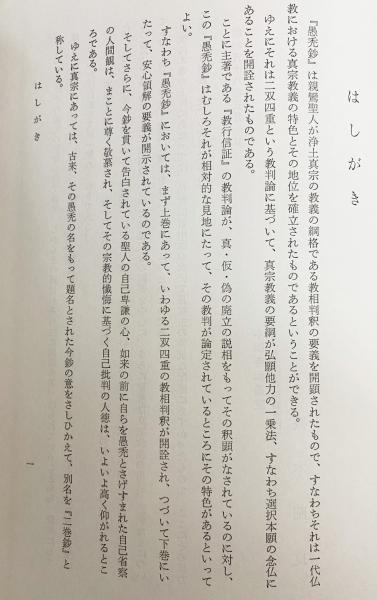 はしがき
『愚禿鈔』は親鸞聖人が浄土真宗の教義の綱格である教相判釈の要義を開顕されたもので、すなわちそれは一代仏
教における真宗教義の特色とその地位を確立されたものであるということができる。
ゆえにそれは二双四重という教判論に基づいて、真宗教義の要綱が弘願他力の一乗法、すなわち選択本願の念仏に
あることを開詮されたものである。
ことに主著である『教行信証』の教判論が、真・仮・偽の廃立の説相をもってその釈顕がなされているのに対し、
この『愚禿鈔』はむしろそれが相対的な見地にたって、その教判が論定されているところにその特色があるといって
よい。
すなわち『愚禿鈔』においては、まず上巻にあって、いわゆる二双四重の教相判釈が開詮され、つづいて下巻にい
たって、安心領解の要義が開示されているのである。
そしてさらに、今鈔を貫いて告白されている聖人の自己卑謙の心、如来の前に自らを愚禿とさげすまれた自己省察
の人間観は、まことに尊く敬慕され、そしてその宗教的懺悔に基づく自己批判の人徳は、いよいよ高く仰がれるとこ
ろである。
ゆえに真宗にあっては、古来、その愚禿の名をもって題名とされた今鈔の意をさしひかえて、別名を『二巻鈔』と
称している。
はしがき
一